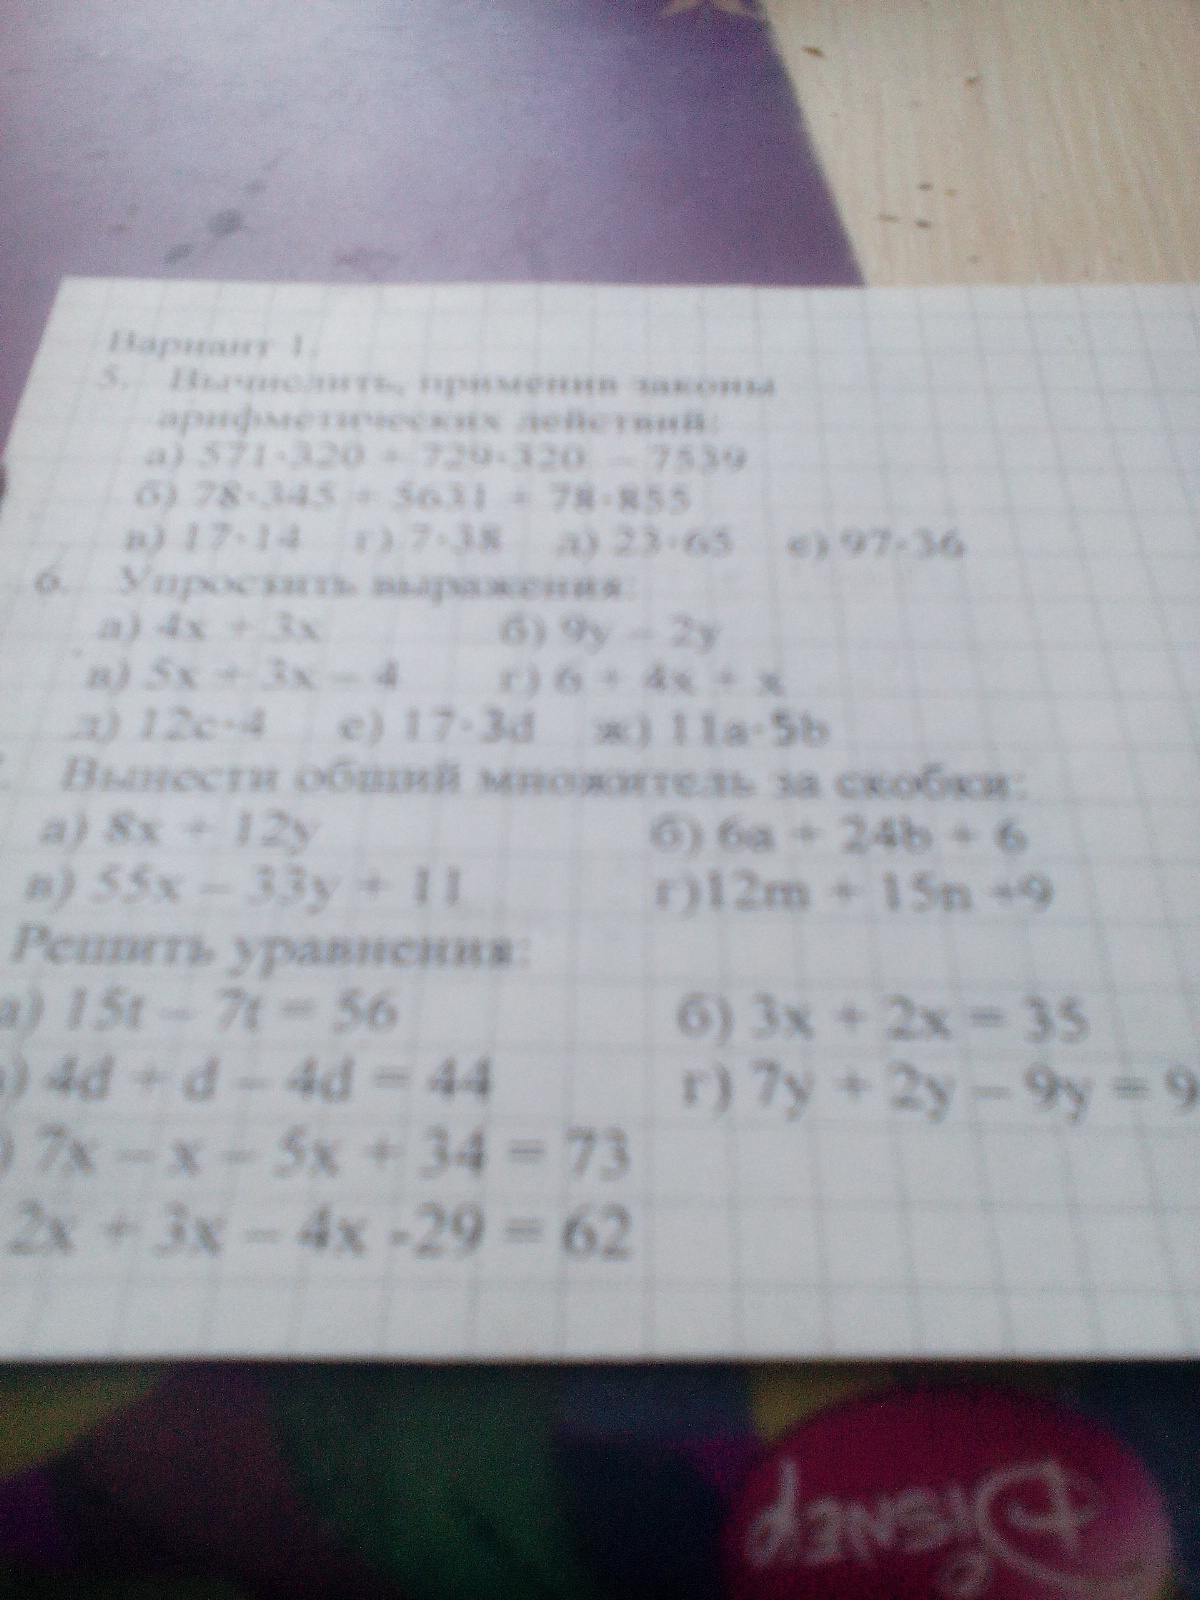 Вариант 1.
5. Вычислить, применив законы
арифметических действий:
а) 571·320 + 729·320 – 7539
б) 78·345 + 5631 + 78·855
в) 17·14 г) 7·38 д) 23·65 е) 97·36
6. Упростить выражения:
а) 4x + 3x б) 9y – 2y
в) 5x + 3x – 4 г) 6 + 4x + x
д) 12c·4 е) 17·3d ж) 11a·5b
Вынести общий множитель за скобки:
а) 8x + 12y б) 6a + 24b + 6
в) 55x – 33y + 11 г)12m + 15n +9
Решить уравнения:
а) 15t – 7t = 56 б) 3x + 2x = 35
) 4d + d – 4d = 44 г) 7y + 2y – 9y = 9
) 7x – x – 5x + 34 = 73
2x + 3x – 4x -29 = 62
Disney